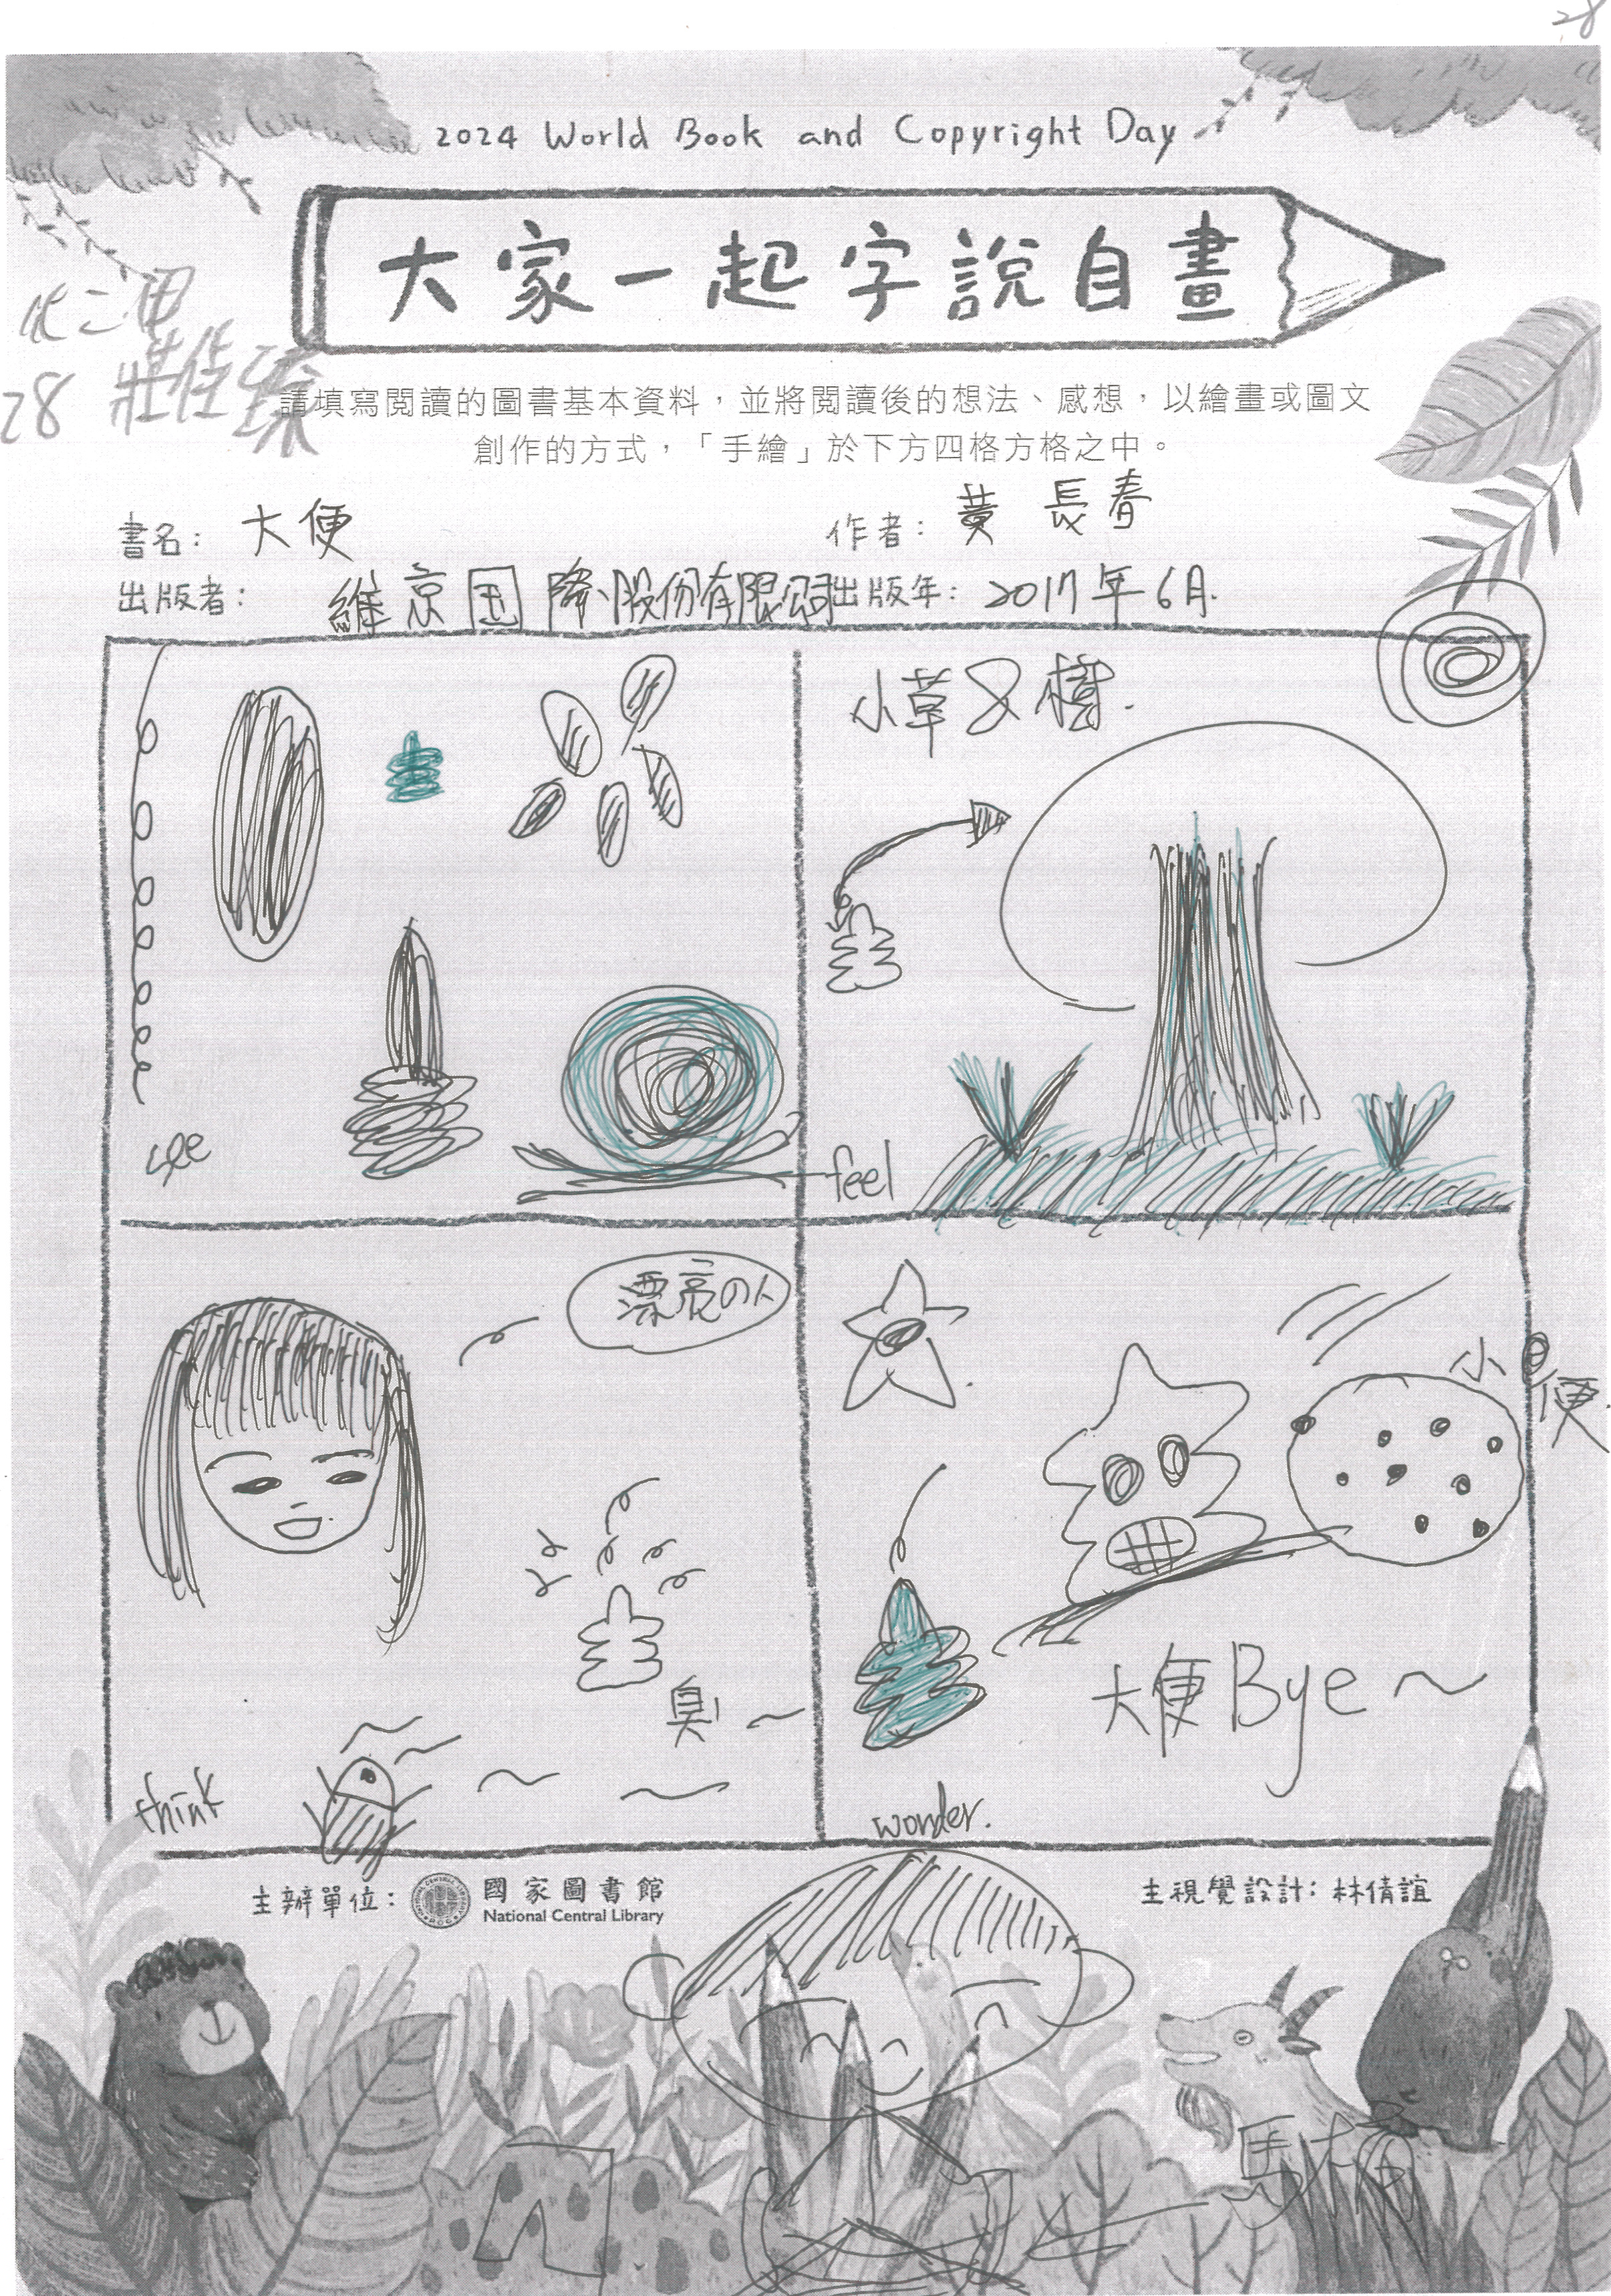 28
2024 World Book and Copyright Day
大家一起字說自畫
28 莊佳臻
請填寫閱讀的圖書基本資料，並將閱讀後的想法、感想，以繪畫或圖文
創作的方式，「手繪」於下方四格方格之中。
書名： 大便
作者： 黃 長春
出版者： 維京国際股份有限公司
出版年： 2017年6月.
see
小草 樹.
feel
漂亮の人
臭
think
小便.
大便Bye～
wonder.
主辦單位： 國家圖書館
National Central Library
主視覺設計：林倩誼
馬桶